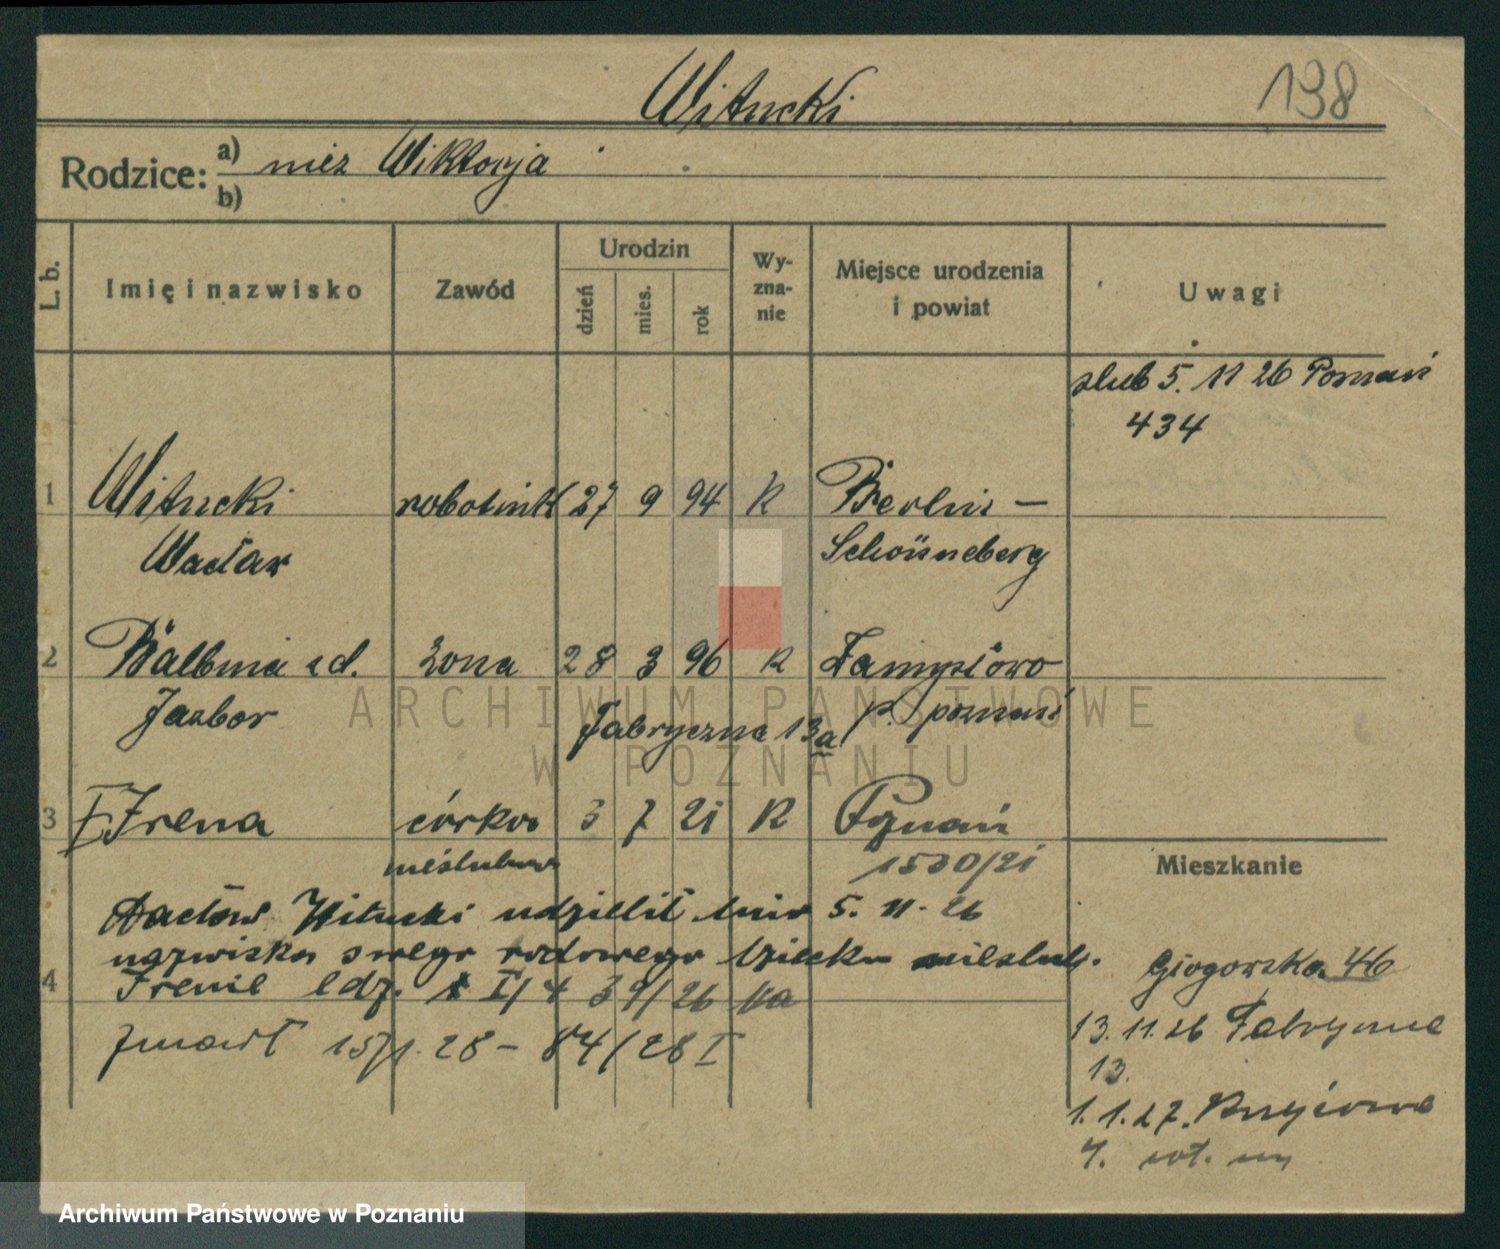 Witucki
138
Rodzice: a) nież Wiktorja
b)
L. b.
Imię i nazwisko
Zawód
Urodzin
dzień
mies.
rok
Wy-
zna-
nie
Miejsce urodzenia
i powiat
Uwagi
ślub 5. 11 26 Poznań
434
1 Witucki robotnik 27 9 94 K Berlin –
Wacław Schöneberg
2 Balbina z d. żona 28 3 96 K Zamysłowo
Jazbor p. poznań
Fabryczna 13a
3 Irena córka 3 7 21 K Poznań
nieślubna 1530/21
Mieszkanie
Wacław Witucki udzielił dnia 5. 11. 26
nazwiska swego rodowego dziecku nieślub.
4 Irenie ldz. I/4 39/26
zmarł 15/1. 28 – 84/28 I
Głogowska 46
13. 11. 26 Fabryczna
13.
1. 1. 27.
4.
ARCHIWUM PAŃSTWOWE
W POZNANIU
Archiwum Państwowe w Poznaniu